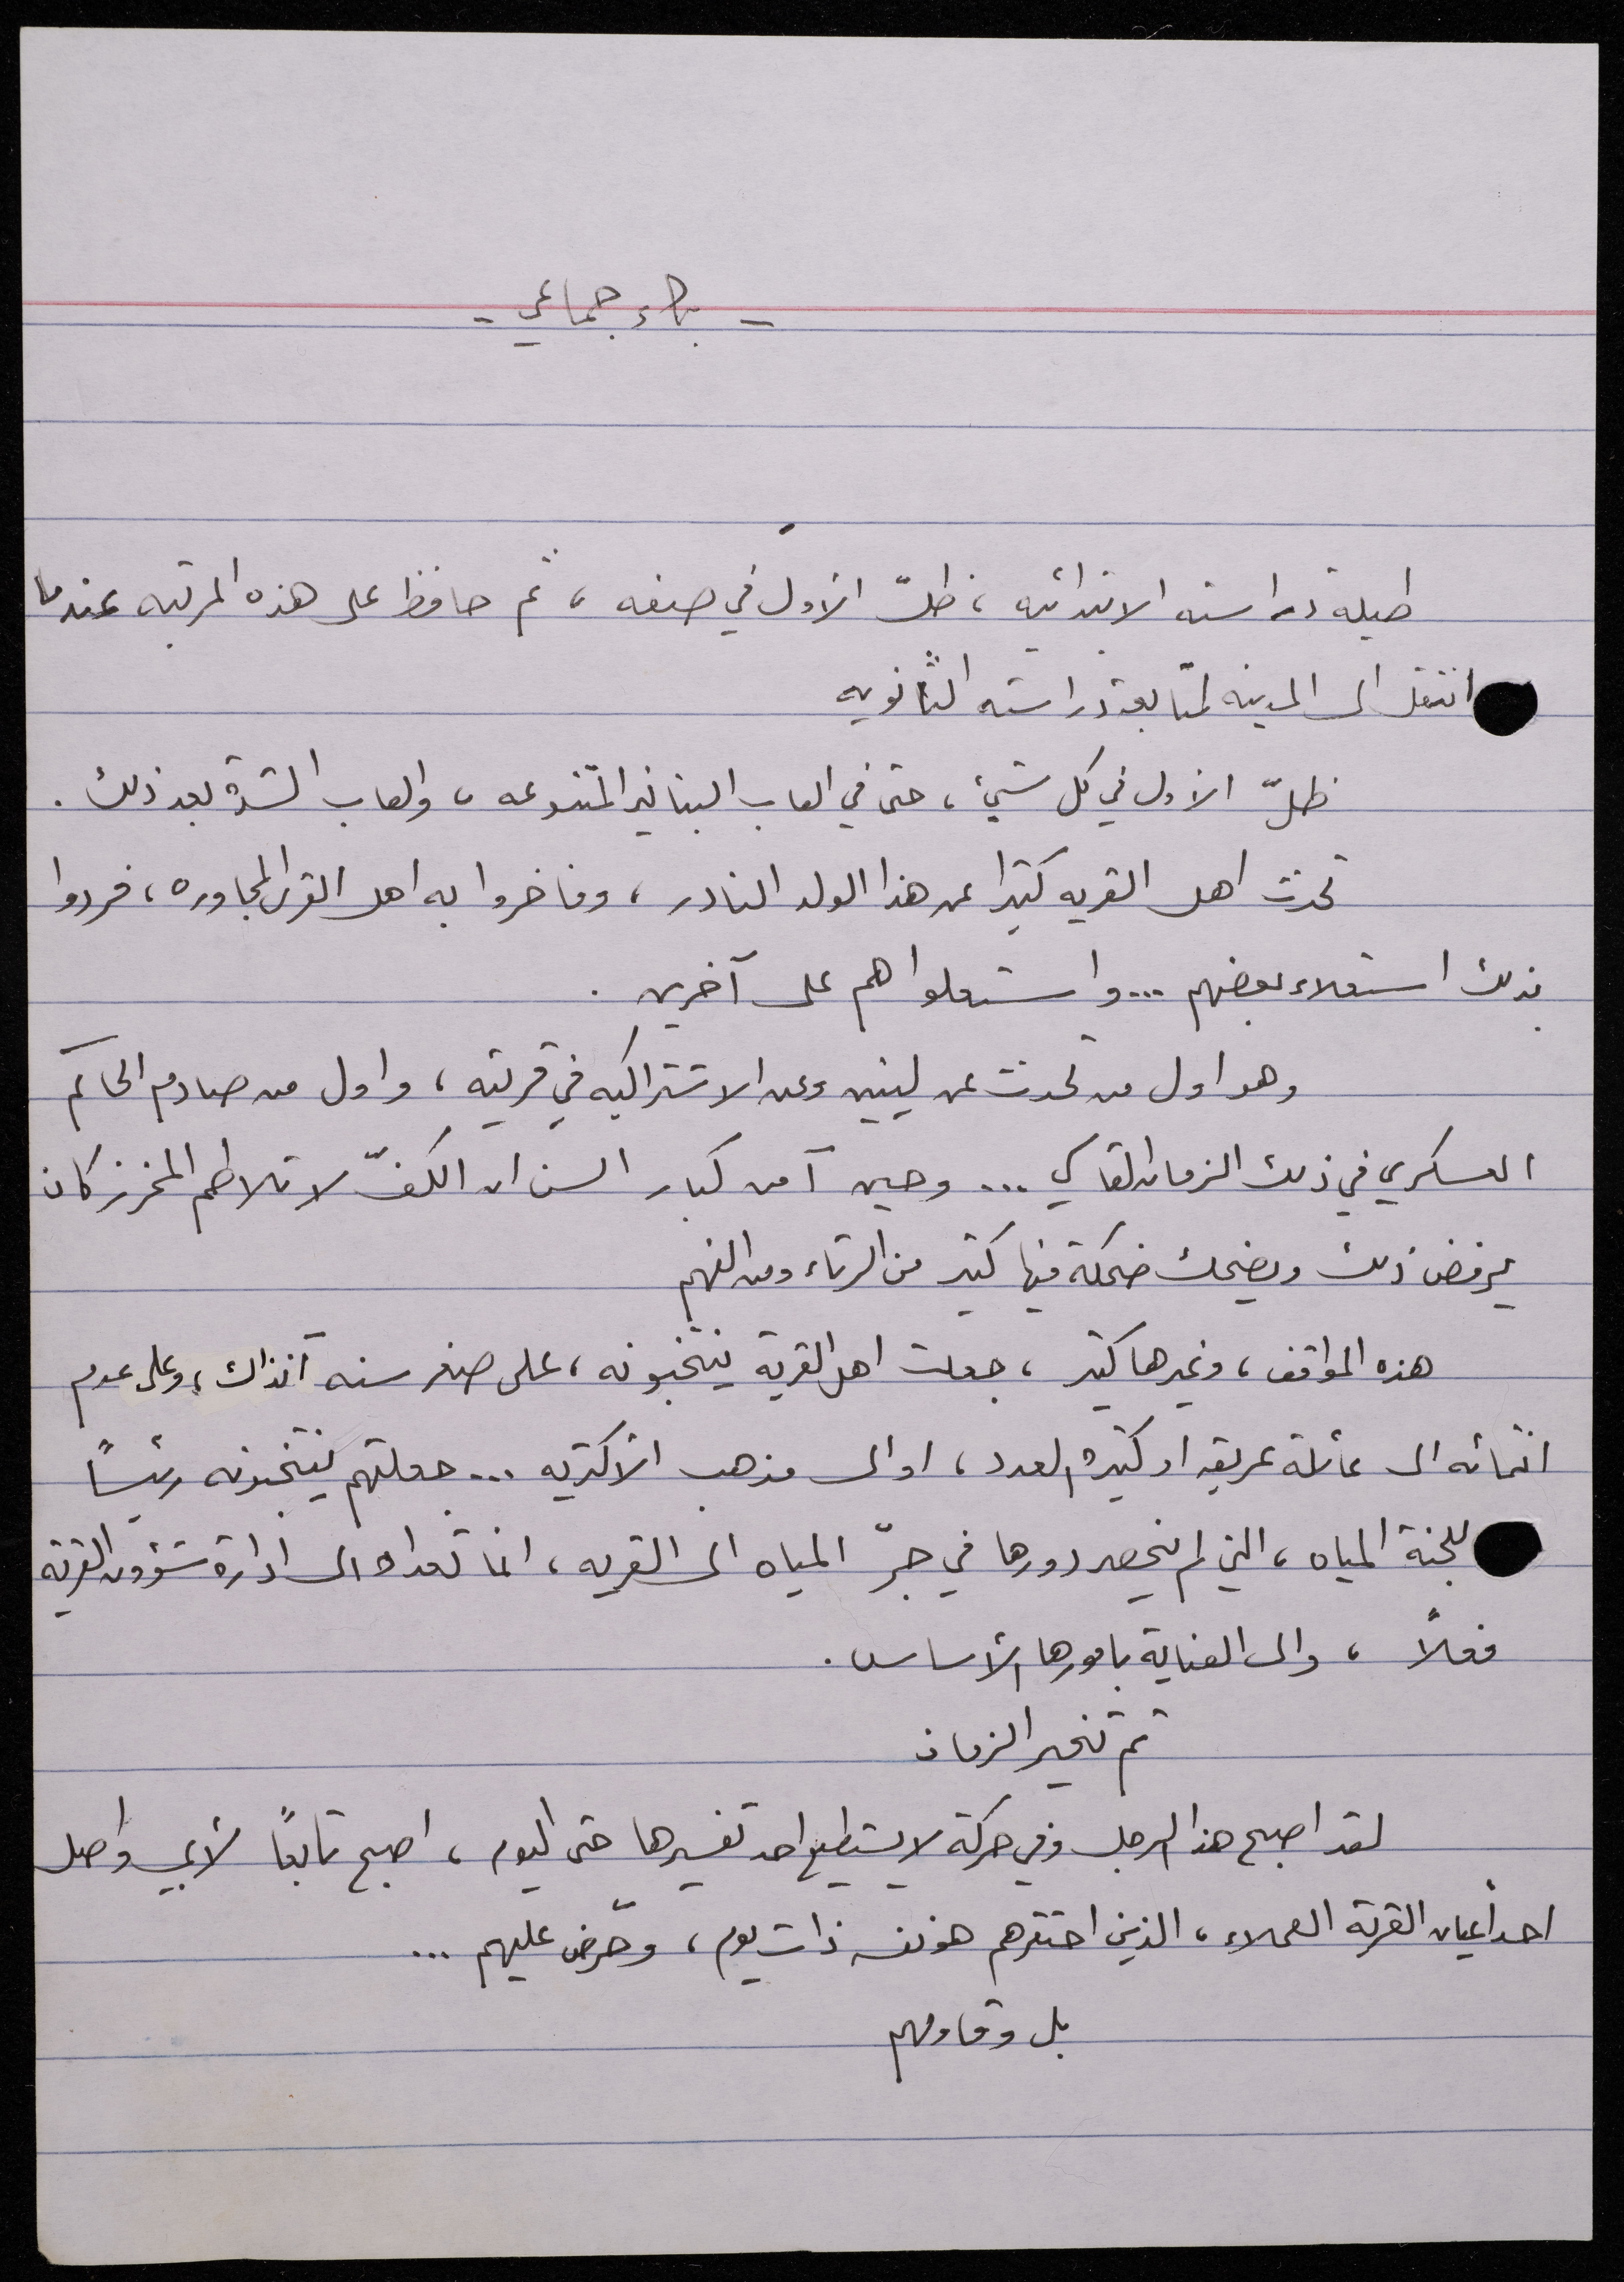 - بكاء جماعي -
طيلة دراسته الابتدائيه ، ظلّ الأول في صفه ، ثم حافظ على هذه المرتبه عندما
انتقل الى المدينه لمتابعة دراسته الثانويه
ظلّ الأول في كل شيئ ، حتى في العاب البنانير المتنوعه ، والعاب الشدة بعد ذلك .
تحدث اهل القريه كثيرا عن هذا الولد النادر ، وفاخروا به اهل القرى المجاوره ، فردوا
بذلك استعلاء بعضهم ... واستعلوا هم على آخرين .
وهو اول من تحدث عن لينين وعن الاشتراكيه في قريته ، واول من صادم الحاكم
العسكري في ذلك الزمان القاسي ... وحين آمن كبار السن ان الكفّ لا تلاطم المخرز كان
يرفض ذلك ويضحك ضحكة فيها كثير من الرثاء ومن الفهم
هذه المواقف ، وغيرها كثير ، جعلت اهل القرية ينتخبونه ، على صغر سنه آنذاك ، وعلى عدم
انتمائه الى عائلة عريقه او كثيرة العدد ، او الى مذهب الأكثريه ... جعلتهم ينتخبونه رئيساً
للجنة المياه ، التي لم ينحصر دورها في جرّ المياه الى القريه ، انما تعداه الى ادارة شؤون القرية
فعلاً ، والى العناية بامورها الأساس .
ثم تغير الزمان
لقد اصبح هذا الرجل وفي حركة لا يستطيع احد تفسيرها حتى اليوم ، اصبح تابعاً لأبي واصل
احد أعيان القرية العملاء ، الذين احتقرهم هو نفسه ذات يوم ، وحرّض عليهم ...
بل وقاومهم